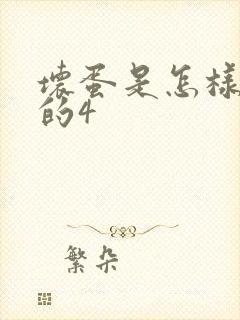 壞蛋是怎樣
的4
繁朵